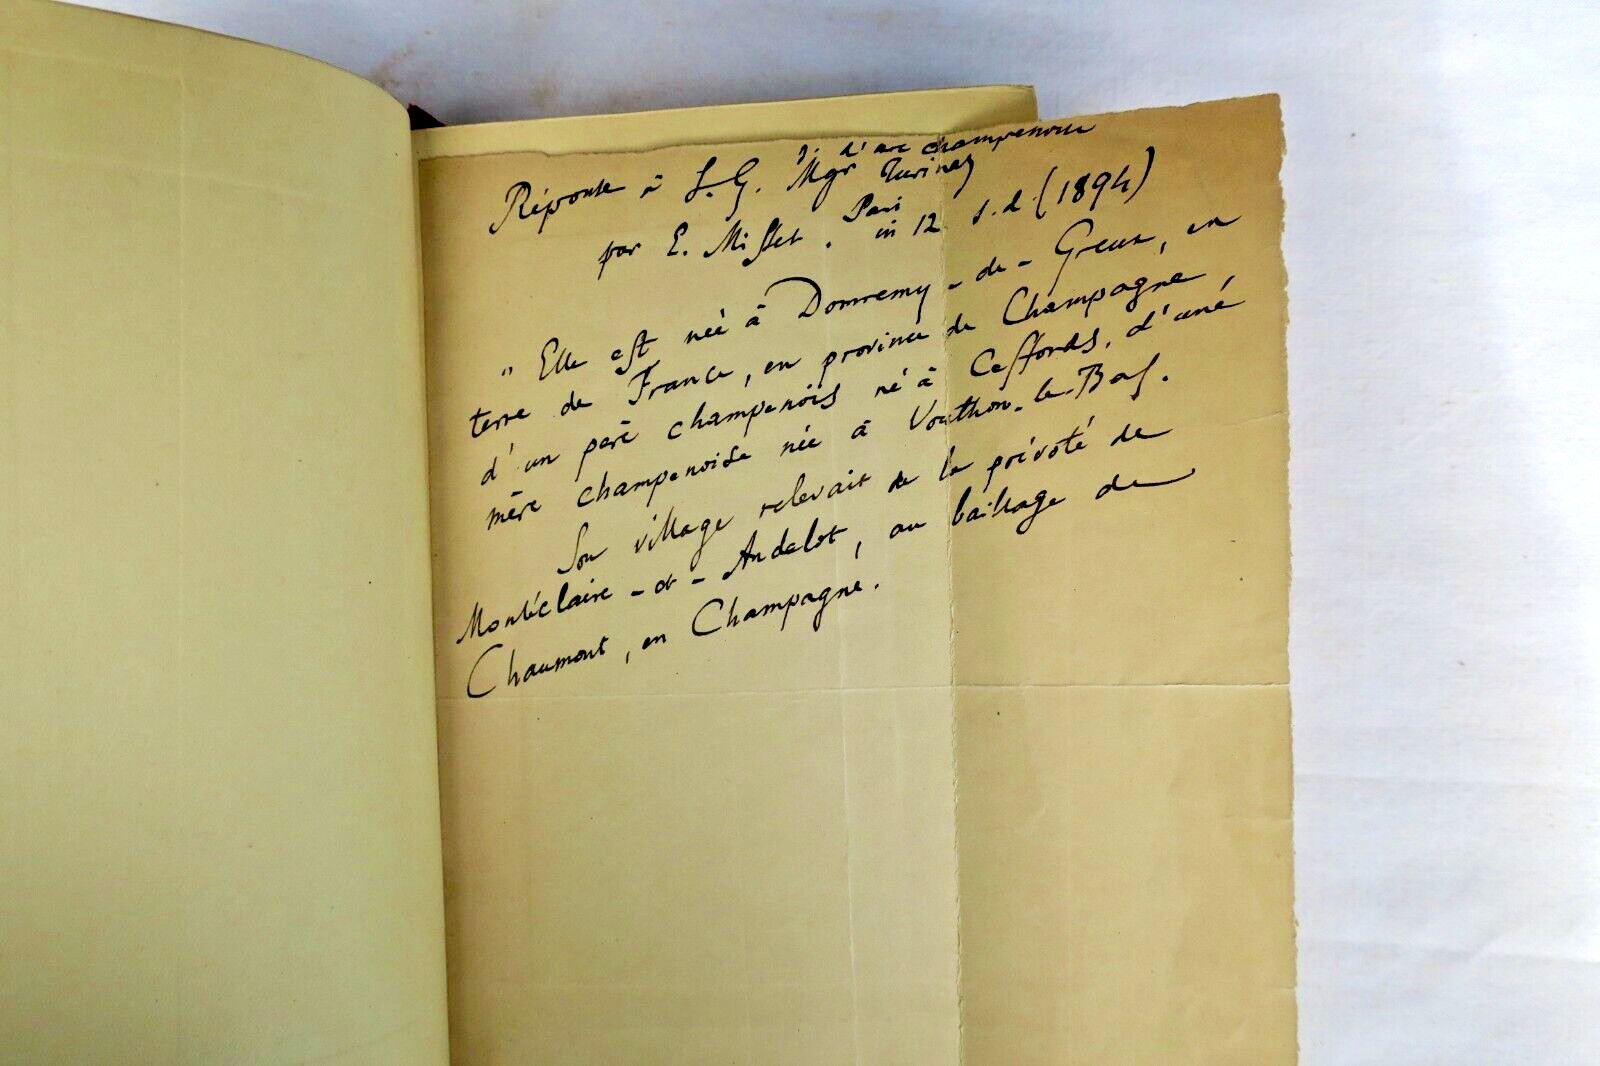 J. d'arc champenoise
Réponse à S. G. Mgr Turinaz
par E. Misset. Paris in 12 s.d. (1894)
" Elle est née à Domremy-de-Greux, en
terre de France, en province de Champagne,
d'un père champenois né à Ceffonds, d'une
mère champenoise née à Vouthon-le-Bas.
Son village relevait de la prévôté de
Montéclaire-et-Andelot, au bailliage de
Chaumont, en Champagne.